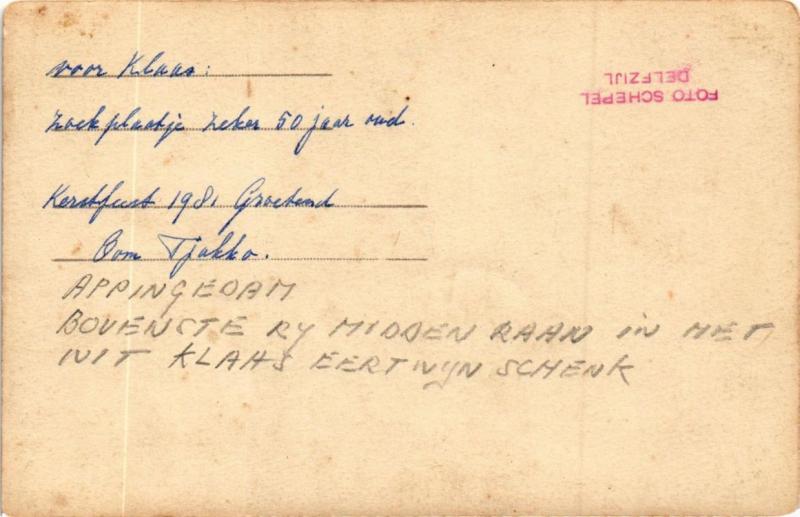 voor Klaas:
zoek plaatje zeker 50 jaar oud.
Kerstfeest 1981 Groetend
Oom Tjakko.
APPINGEDAM
BOVENSTE RY MIDDEN RAAN IN HET
WIT KLAAS EERTWYN SCHENK
FOTO SCHEPEL
DELFZIJL